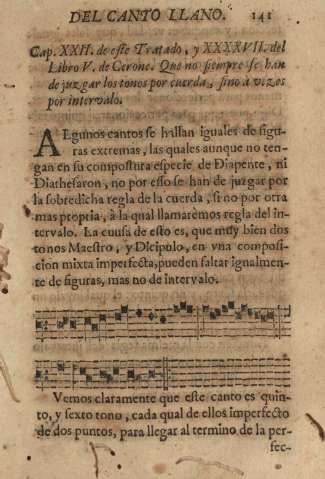 DEL CANTO LLANO. 141
Cap. XXII. de este Tratado, y XXXXVII. del
Libro V. de Cerone. Que no siempre se han
de juzgar los tonos por cuerda, sino à vezes
por intervalo.
ALgunos cantos se hallan iguales de figu-
ras extremas, las quales aunque no ten-
gan en su compostura especie de Diapente, ni
Diathesaron, no por esso se han de juzgar por
la sobredicha regla de la cuerda, si no por otra
mas propria, à la qual llamarèmos regla del in-
tervalo. La causa de esto es, que muy bien dos
tonos Maestro, y Dicipulo, en vna composi-
cion mixta imperfecta, pueden faltar igualmen-
te de figuras, mas no de intervalo.
Vemos claramente que este canto es quin-
to, y sexto tono, cada qual de ellos imperfecto
de dos puntos, para llegar al termino de la per-
fec-